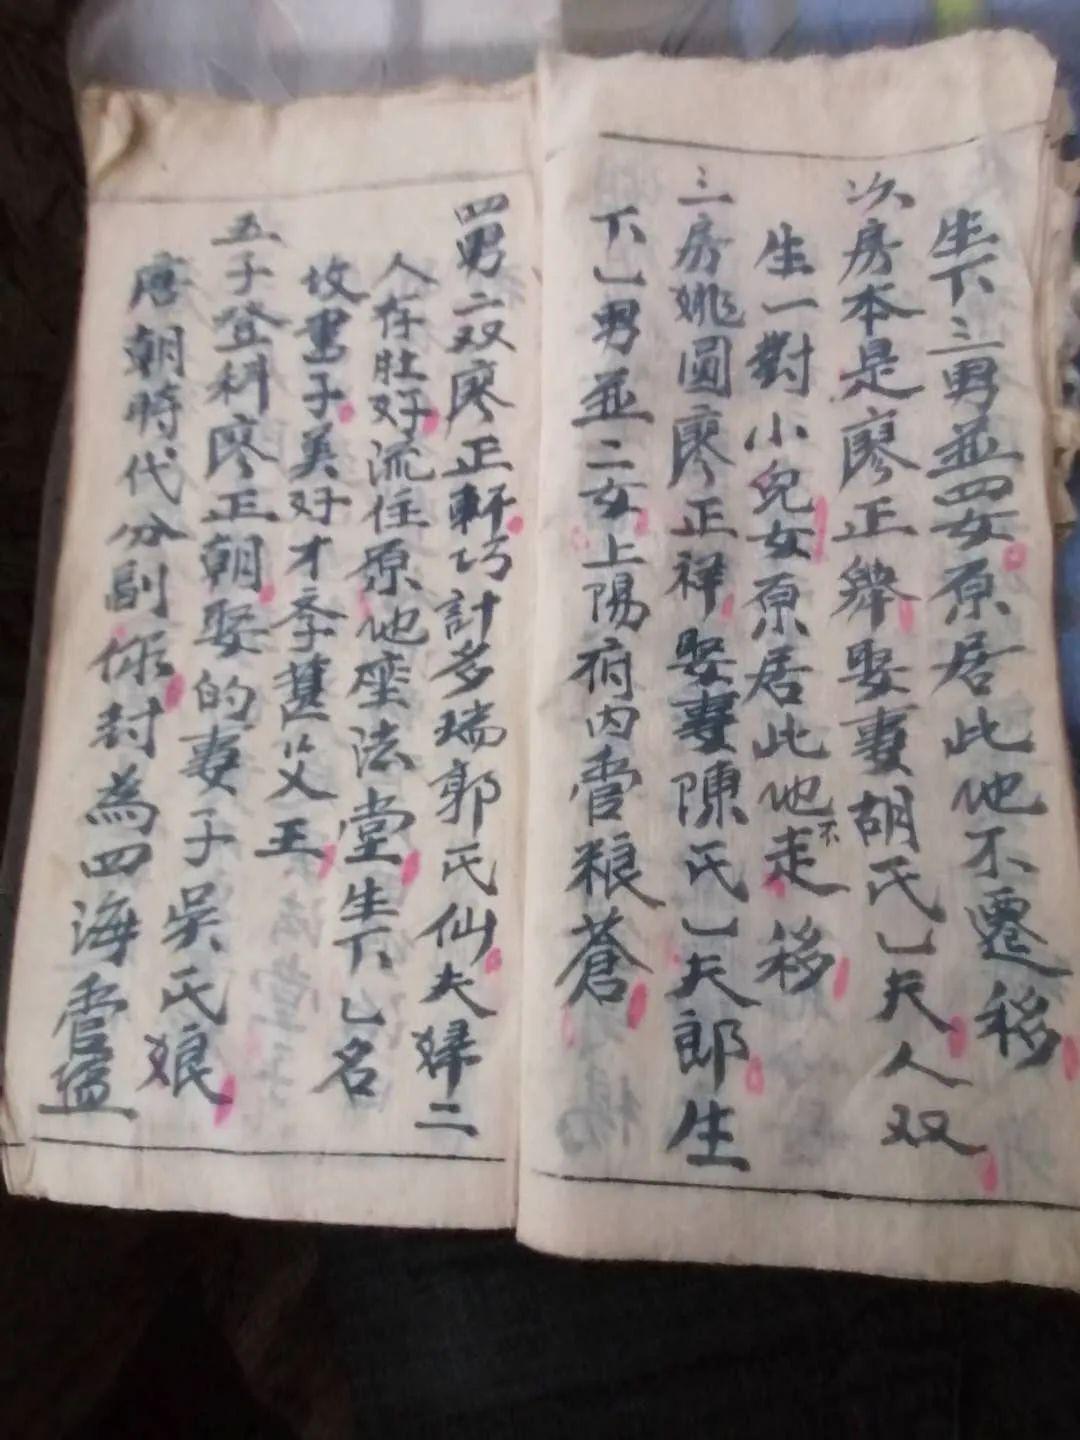 生下三男並四女原居此地不遷移
次房本是廖正舉娶妻胡氏乚夫人双
生一對小兒女原居此地不走移
三房姚圓廖正祥娶妻陳氏乚夫郎生
下乚男並二女上陽府内管粮蒼
四男二双廖正軒巧計多瑞郭氏仙夫婦二
人存肚好流住原地座法堂生下乚名
坟書子英好才李父王
五子登科廖正朝娶的妻子吳氏娘
唐朝時代分副你封為四海管